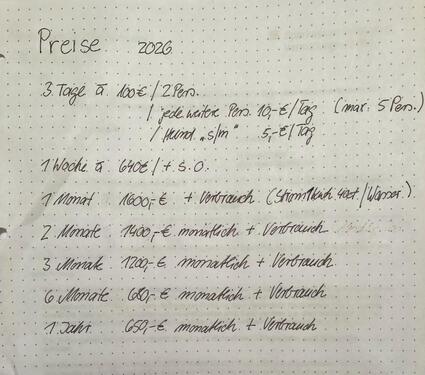 Preise 2026
3 Tage à 100€ / 2 Pers.
/ jede weitere Pers. 10,-€/Tag (max. 5 Pers.)
/ Hund „s/m" 5,-€/Tag
1 Woche à 640€ / + s.o.
1 Monat 1600,-€ + Verbrauch (Strom 40ct./Wasser)
2 Monate 1400,-€ monatlich + Verbrauch
3 Monate 1200,-€ monatlich + Verbrauch
6 Monate € monatlich + Verbrauch
1 Jahr 650,-€ monatlich + Verbrauch